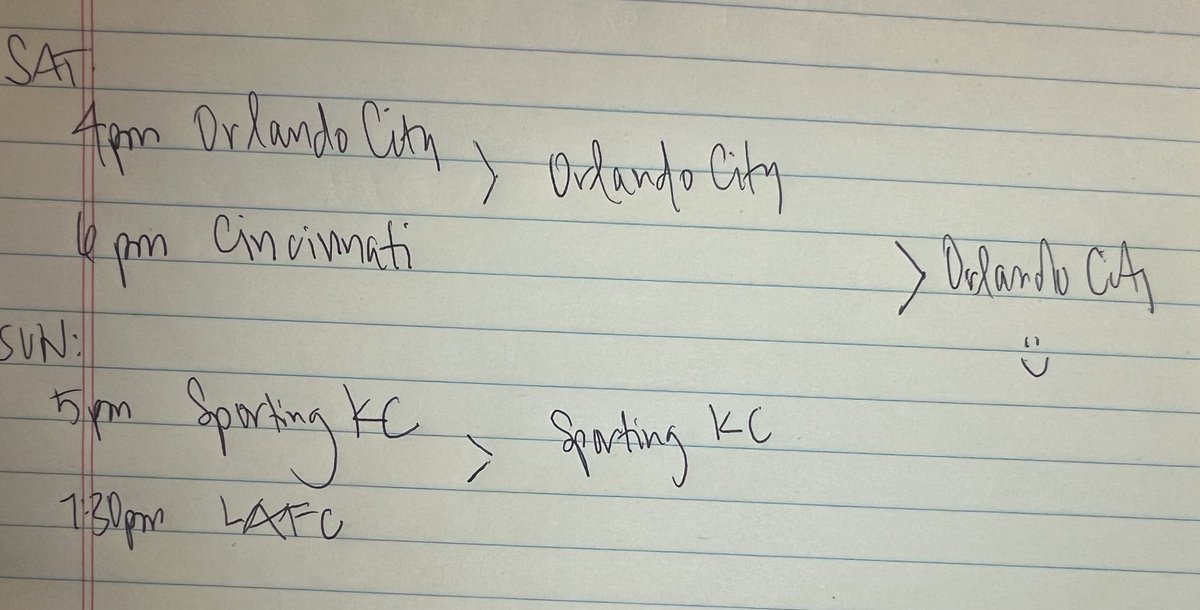 SAT
4pm Orlando City > Orlando City
6 pm Cincinnati
> Orlando City
SUN:
5pm Sporting KC > Sporting KC
7:30pm LAFC